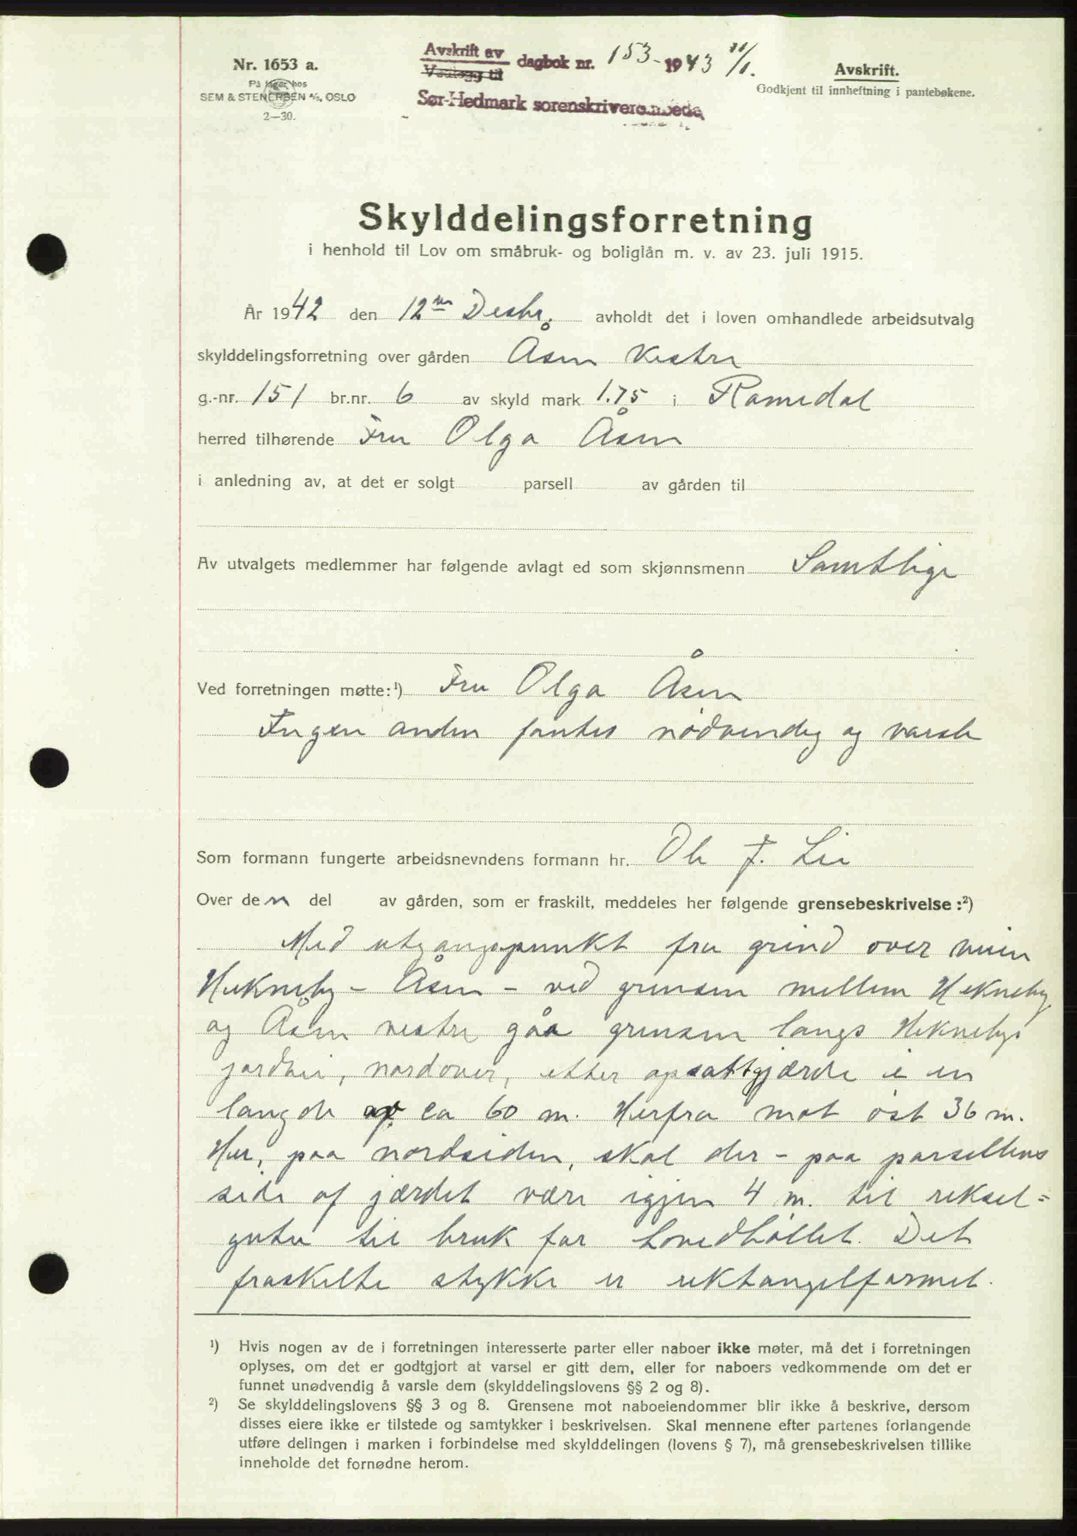 Nr. 1653 a.
På lager hos
SEM & STENERSEN A/S, OSLO
2—30.
Avskrift av dagbok nr. 153 - 1943 11/1.
Vedlegg til
Sør-Hedmark sorenskriverembede
Avskrift.
Godkjent til innheftning i pantebøkene.
Skylddelingsforretning
i henhold til Lov om småbruk- og boliglån m. v. av 23. juli 1915.
År 1942 den 12te Desbr. avholdt det i loven omhandlede arbeidsutvalg
skylddelingsforretning over gården Åsen vestre
g.-nr. 151 br.nr. 6 av skyld mark 1.75 i Romedal
herred tilhørende Fru Olga Åsen
i anledning av, at det er solgt parsell av gården til
Av utvalgets medlemmer har følgende avlagt ed som skjønnsmenn Samtlige
Ved forretningen møtte:¹) Fru Olga Åsen
Ingen anden fantes nødvendig og varsle
Som formann fungerte arbeidsnevndens formann hr. Ole J. Lie
Over den del av gården, som er fraskilt, meddeles her følgende grensebeskrivelse:²)
Med utgangspunkt fra grind over veien
Hekneby - Åsen - ved grensen mellem Hekneby
og Åsen vestre, gåa grensen langs Heknebys
jordvei, nordover, etter opsatt gjærde i en
langde av ca 60 m. Herfra mot øst 36 m.
Her, paa nordsiden, skal der - paa parsellens
side af jærdet være igjen 4 m. til reksel=
gutu til bruk for hovedbøllet. Det
fraskilte stykke er rektangelformet.
¹) Hvis nogen av de i forretningen interesserte parter eller naboer ikke møter, må det i forretningen
oplyses, om det er godtgjort at varsel er gitt dem, eller for naboers vedkommende om det er
funnet unødvendig å varsle dem (skylddelingslovens §§ 2 og 8).
²) Se skylddelingslovens §§ 3 og 8. Grensene mot naboeiendommer blir ikke å beskrive, dersom
disses eiere ikke er tilstede og samtykker i beskrivelsen. Skal mennene efter partenes forlangende
utføre delingen i marken i forbindelse med skylddelingen (lovens § 7), må grensebeskrivelsen tillike
inneholde det fornødne herom.